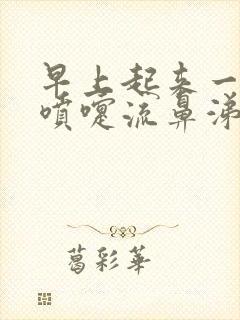 早上起来一
喷嚏流鼻涕
葛彩華